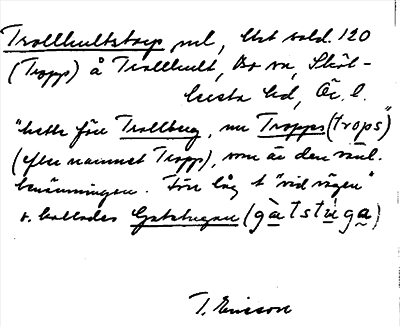 Trollhultstorp rul, Utst sold. 120
(Tropp) å Trollhult, Bo sn, Sköl-
lersta hd, Ör. l.
"hette förr Trollberg, nu Tropps (trops)"
(efter namnet Tropp), som är den vanl.
benämningen. Förr låg t "vid vägen"
o. kallades Gatstugan (gàtstùga)
T. Ericsson